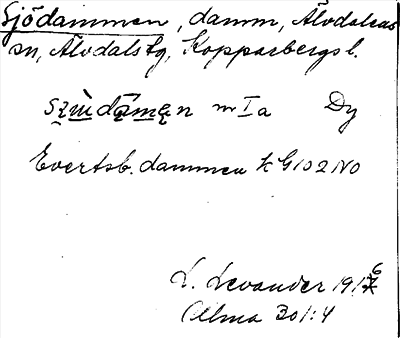 Sjödammen, damm, Älvdalens
sn, Älvdals tg, Kopparbergs l.
m I a Dy
Evertsb. dammen k G 102 NO
L. Levander 1916
Alma 301:4